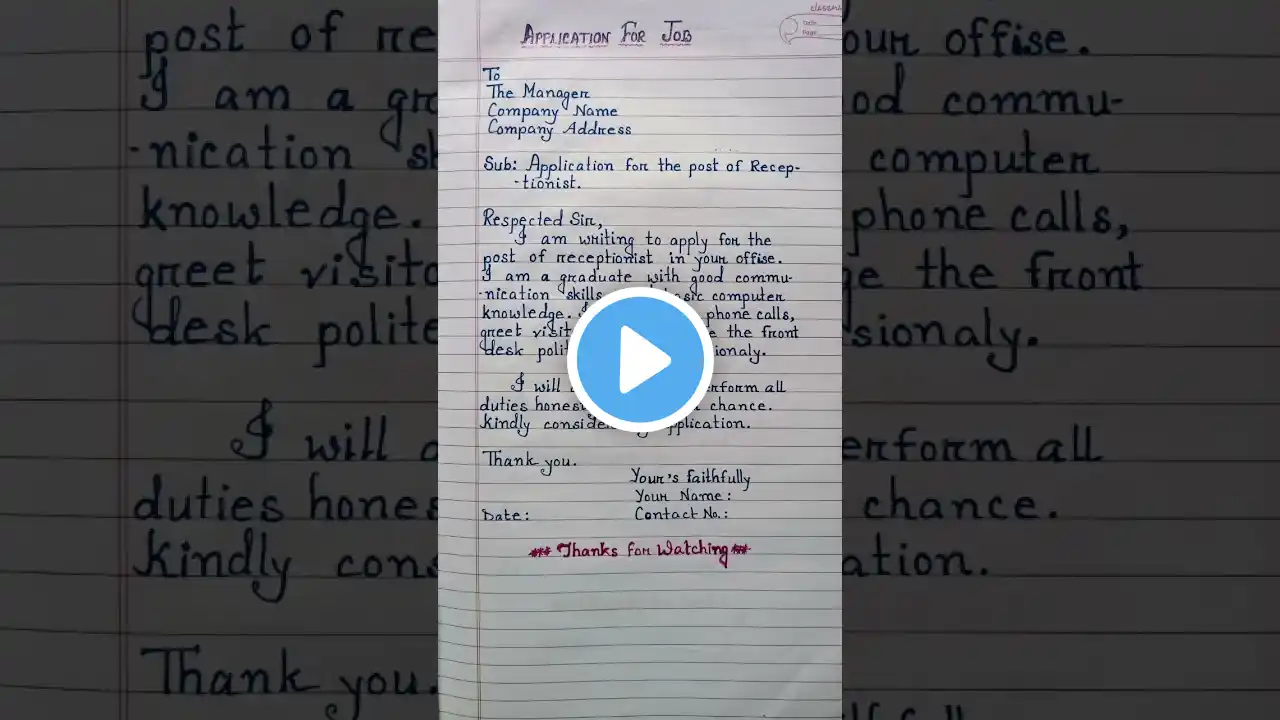 APPLICATION FOR JOB
Date
Page
To
The Manager
Company Name
Company Address
Sub: Application for the post of Recep-
-tionist.
Respected Sir,
I am writing to apply for the
post of receptionist in your offise.
I am a graduate with good commu-
-nication skills basic computer
knowledge. phone calls,
greet the front
desk
I will perform all
duties chance.
Kindly application.
Thank you.
Your's faithfully
Your Name:
Date: Contact No.:
*** Thanks for Watching ***